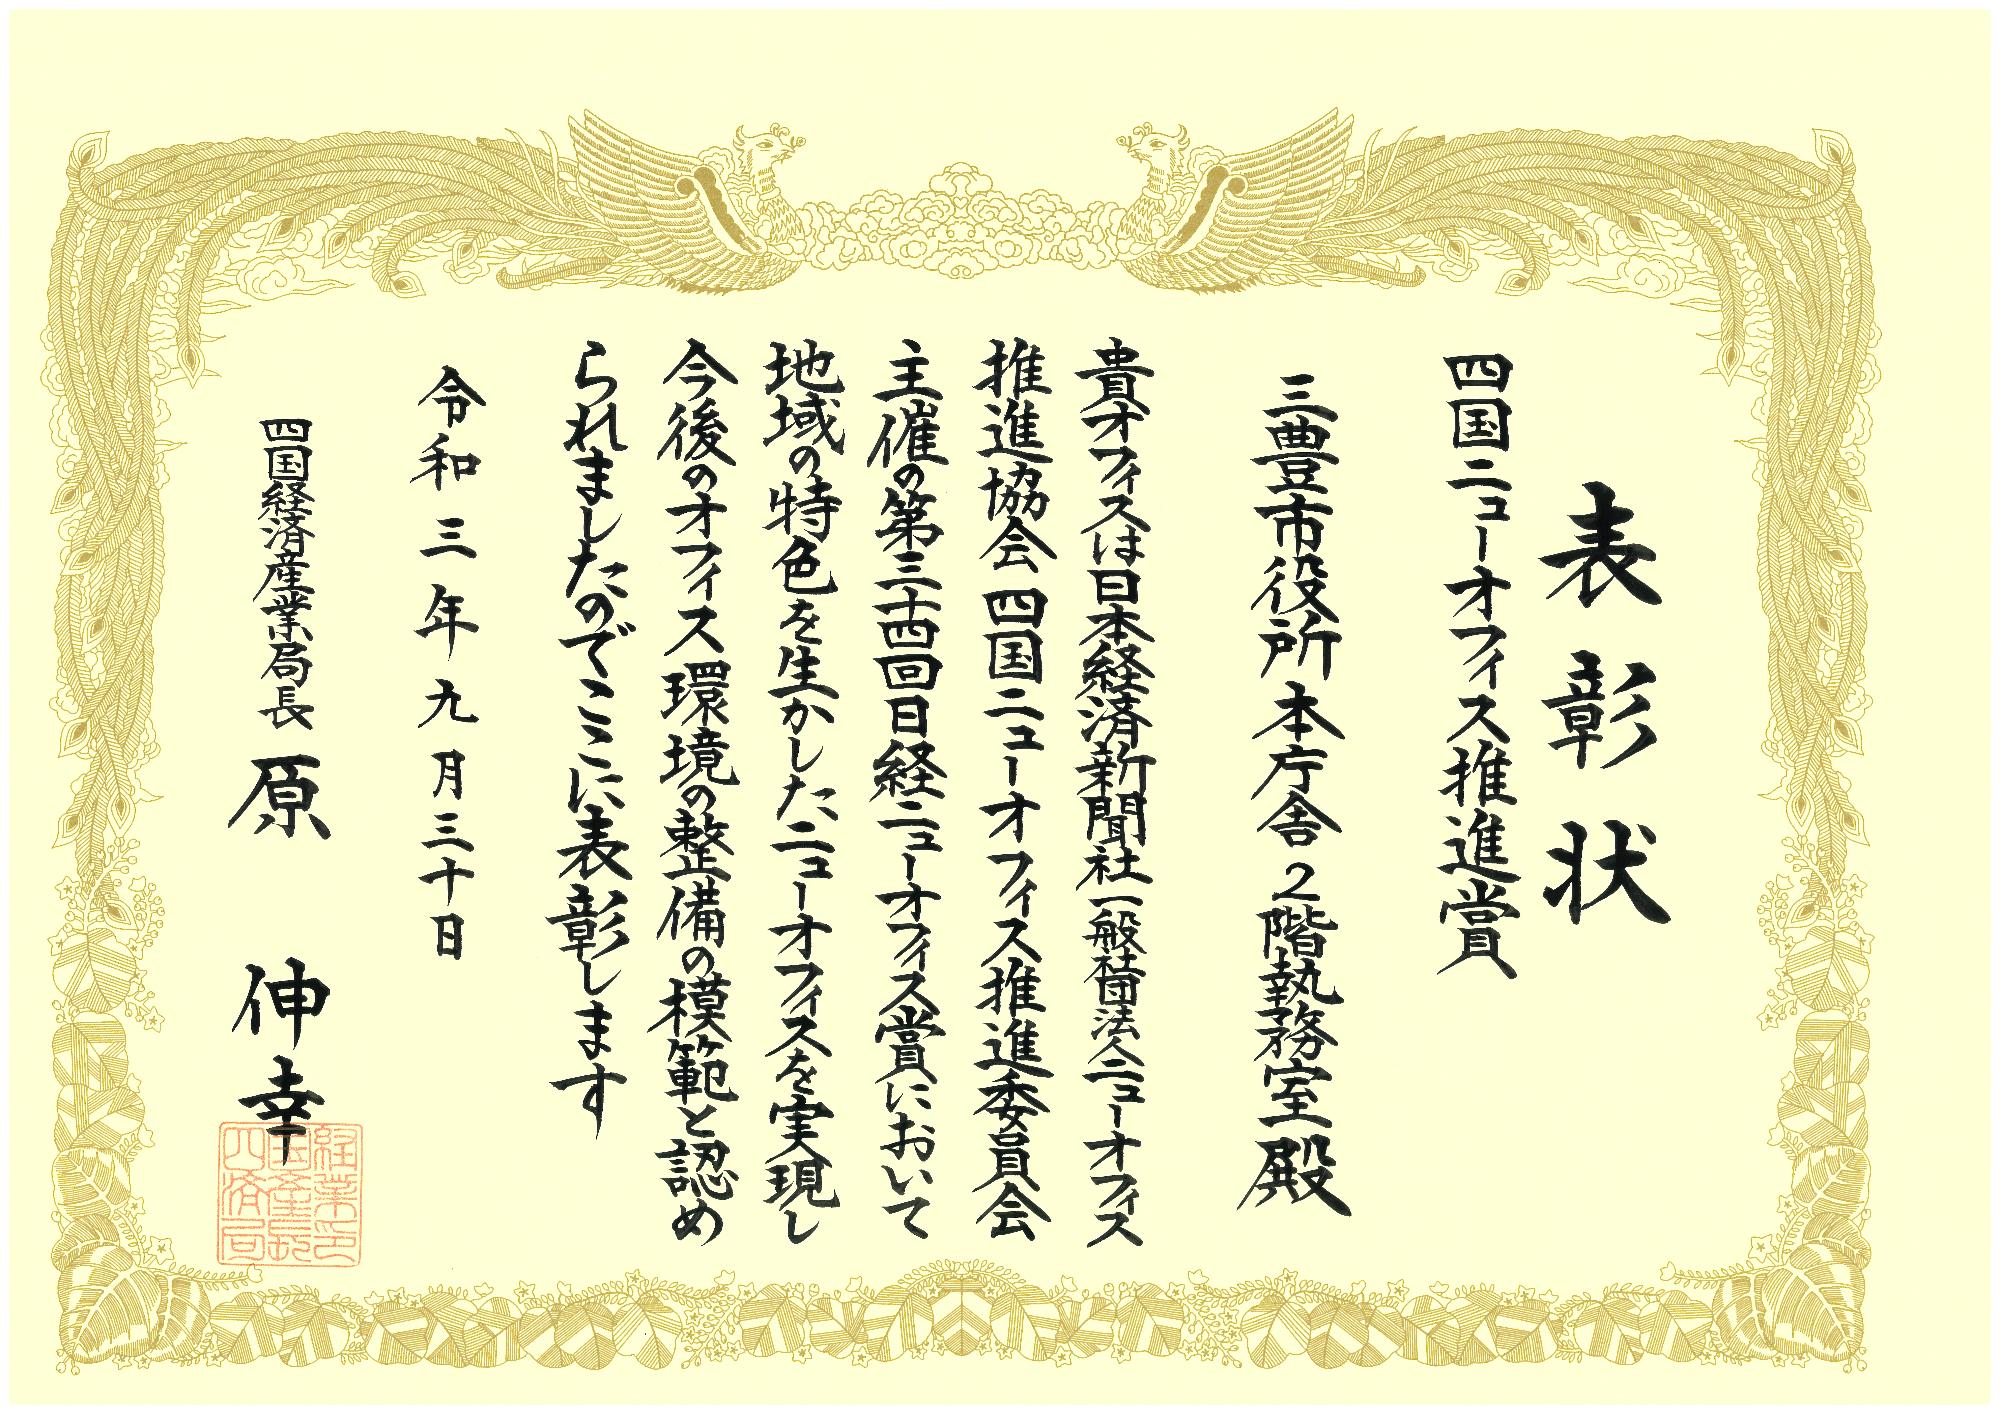 表彰状
四国ニューオフィス推進賞
三豊市役所 本庁舎 2階執務室 殿
貴オフィスは日本経済新聞社一般社団法人ニューオフィス
推進協会 四国ニューオフィス推進委員会
主催の第三十四回日経ニューオフィス賞において
地域の特色を生かしたニューオフィスを実現し
今後のオフィス環境の整備の模範と認め
られましたのでここに表彰します
令和三年九月三十日
四国経済産業局長 原 伸幸
経業印
国産長
四済局